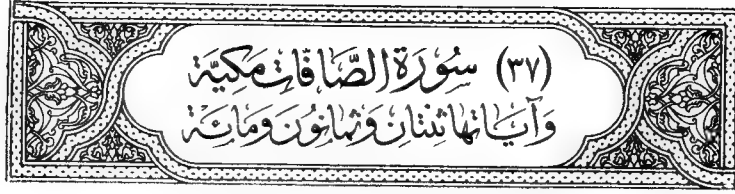 (٣٧) سُورَة الصَّافَّاتِ مَكِيَّة
وَآيَاتهَا ثِنتَانِ وَثمَانُونَ وَمَائَة